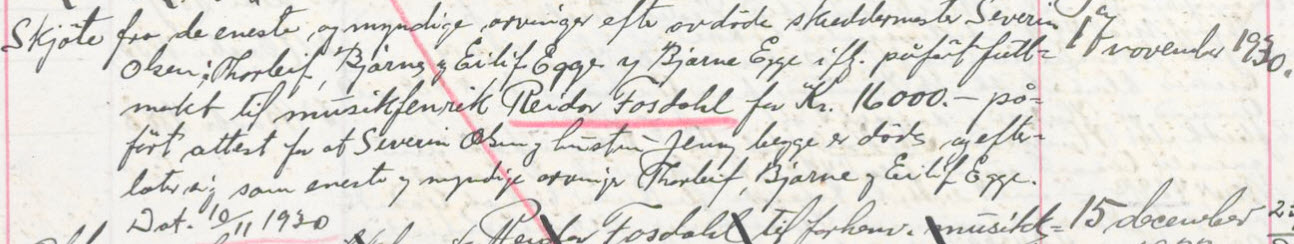 Skjöte fra de eneste og myndige arvinger efter avdöde skreddermester Severin
Olsen: Thorleif, Bjarne og Eilif Egge og Bjarne Egge ifl. påfört fuld- 17 november 1930.
makt til musikfenrik Reidar Fosdahl for Kr. 16000.- på-
fört attest for at Severin Olsen og hustru Jenny begge er döde og efter-
later sig som eneste og myndige arvinger Thorleif, Bjarne og Eilif Egge.
Dat. 10/11 1930
Reidar Fosdahl til forhenv. musikk- 15 december